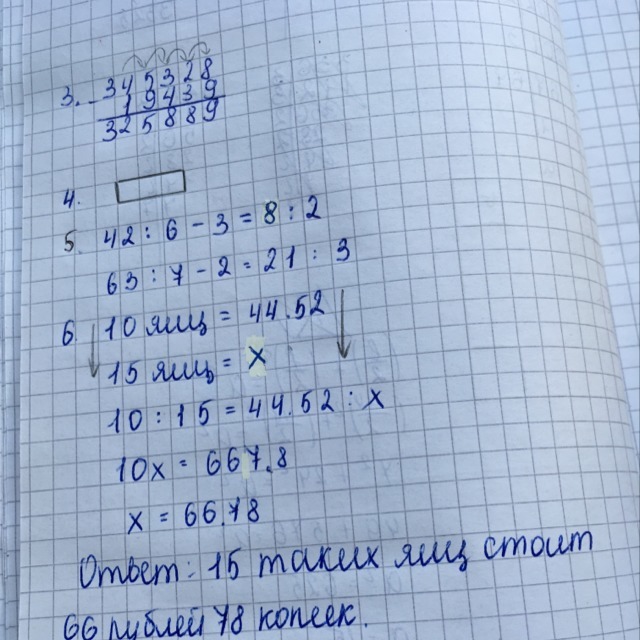 3. - 345328
19439
325889
4.
5. 42 : 6 - 3 = 8 : 2
63 : 7 - 2 = 21 : 3
6 10 яиц = 44.52
15 яиц = x
10 : 15 = 44.52 : x
10x = 667.8
x = 66.78
Ответ: 15 таких яиц стоит
66 рублей 78 копеек.